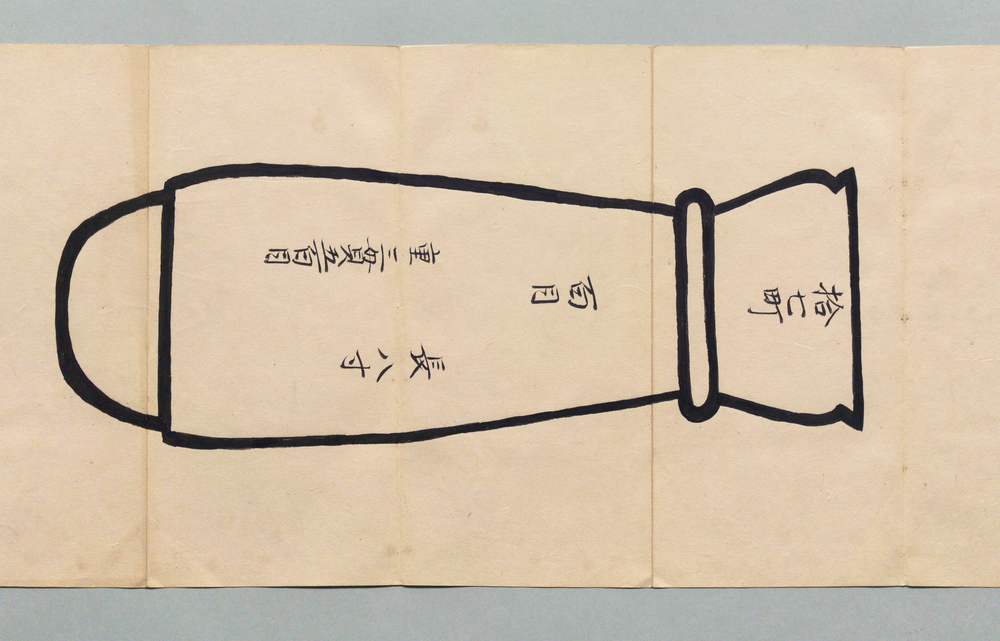 拾七町
百目
長八寸
重三貫五百目